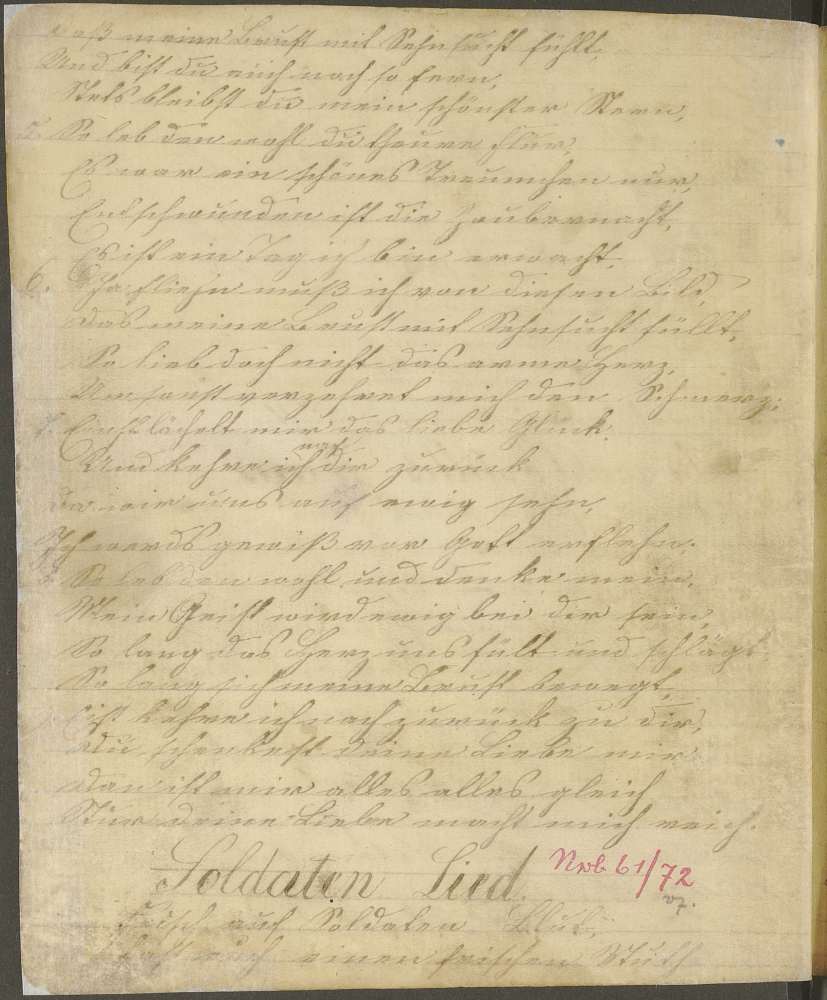 daß meine Brust mit Sehnsucht fühlt,
Und bist du auch noch so fern,
Stets bleibst du mein schönster Stern,
5. So leb den wohl du theure Flur,
Es war ein schönes Treumchen nur,
Entschwunden ist die Zaubernacht,
Es ist ein Tag ich bin erwacht.
6. Ja fliehn muß ich von diesen Bild,
das meine Brust mit Sehnsucht füllt,
So lieb doch nicht das arme Herz,
Umsonst verzehret mich den Schmerz;
7. Einst lächelt mir das liebe Glück,
Und kehre ich nach dir zurück
da wir uns auf ewig sehn,
Ich werds gewiß von Gott erflehn.
8. So leb den wohl und denke mein,
Mein Geist wird ewig bei dir sein,
So lang das Herz uns fült und schlägt
So lang sich meine Brust bewegt,
ist kehre ich nach zurück zu dir,
du schenkest deine Liebe mir
dan ist mir alles alles gleich
Nur deine Liebe macht mich reich.
Soldaten Lied.
Nrb 61/72
Frisch auf Soldaten Blut,
einen frischen Muth